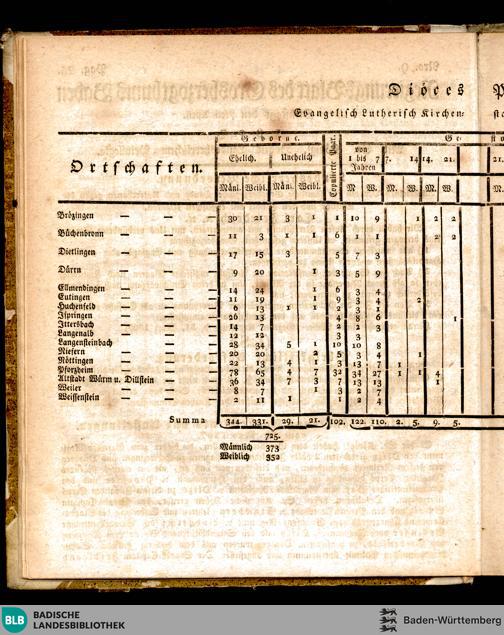 Diöces P
Evangelisch Lutherisch Kirchen-
Ortschaften. Geborne. Copulierte Paar. Ge-
Ehelich. Unehelich von 1 bis 7 Jahren 7. 14 14. 21. 21.
Männl. Weibl. Män. Weibl. M W. M. W. M. W. M.
Brözingen — — — 30 21 3 1 1 10 9 1 2 2
Büchenbronn — — — 11 3 1 1 6 1 1 2 2
Dietlingen — — — 17 15 3 5 7 3
Dürrn — — — 9 20 1 3 5 9
Ellmendingen — — — 14 24 1 6 3 4
Eutingen — — — 11 19 1 9 3 4 2
Huchenfeld — — — 6 13 1 1 2 3 1
Ispringen — — — 26 13 4 8 6 1
Ittersbach — — — 14 7 2 2 3
Langenalb — — — 12 12 3 3
Langensteinbach — — — 28 34 5 1 10 10 8
Niefern — — — 20 20 2 5 3 4 1
Nöttingen — — — 22 13 4 1 3 13 7
Pforzheim — — — 78 65 4 7 32 34 27 1 1 4
Altstadt Würm u. Dillstein — — 36 34 7 3 7 13 13 1
Weiler — — — 8 7 1 3 2 7
Weissenstein — — — 2 11 1 1 2 4
Summa 344. 331. 29. 21. 102. 122. 110. 2. 5. 9. 5.
725.
Männlich 373
Weiblich 352
BLB BADISCHE
LANDESBIBLIOTHEK
Baden-Württemberg